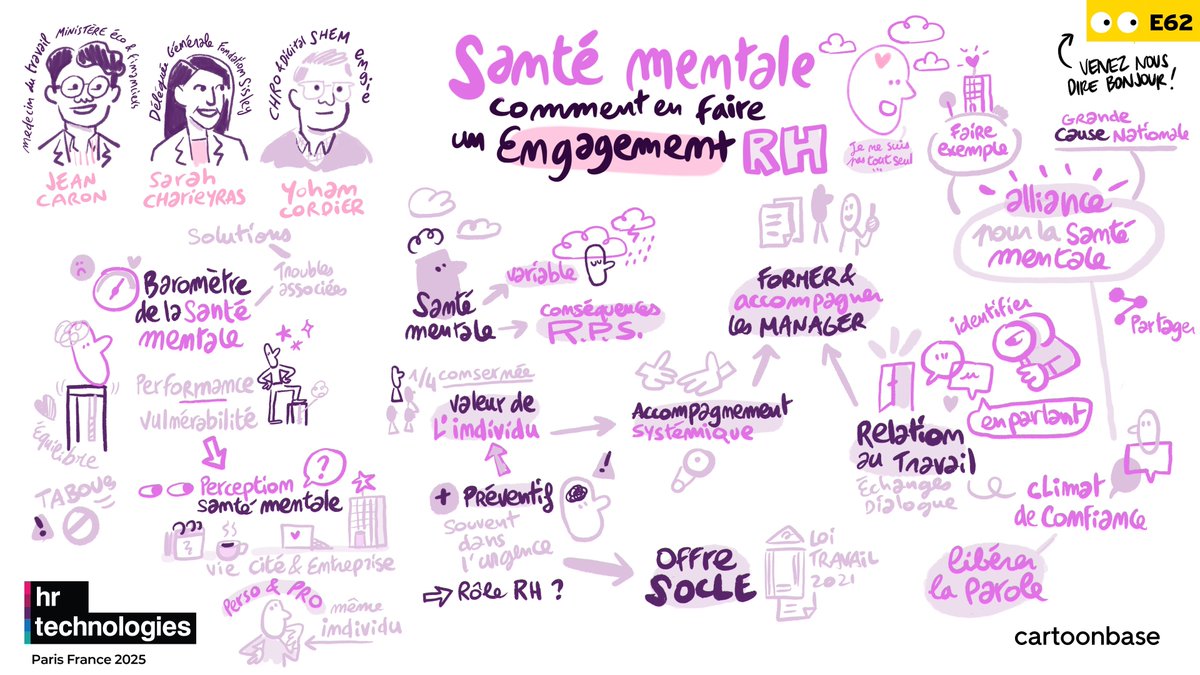 Santé mentale
comment en faire
un Engagement RH
E62
VENEZ NOUS
DIRE BONJOUR !
médecin du travail Ministère éco & finances
JEAN
CARON
Déléguée Générale Fondation Sisley
Sarah
CHarieyras
CHRO & Digital SHEM engie
Yoham
CORDIER
Je me suis
pas tout seul
...
Faire
exemple
GRANDE
Cause Nationale
alliance
pour la Santé
mentale
Partager
Solutions
Troubles
associées
Baromètre
de la Santé
mentale
Performance
vulnérabilité
Équilibre
TABOUS
Perception
santé mentale
?
vie cité & Entreprise
Perso & PRO
même
individu
Santé
mentale
variable
conséquences
R.P.S.
1/4 consernée
valeur de
l'individu
+ Préventif
souvent
dans
l'urgence
Rôle RH ?
Accompagnement
systémique
OFFRE
SOCLE
LOI
TRAVAIL
2021
FORMER &
accompagner
les MANAGER
identifier
en parlant
Relation
au Travail
Échanges
Dialogue
climat
de confiance
libérer
la parole
hr
technologies
Paris France 2025
cartoonbase